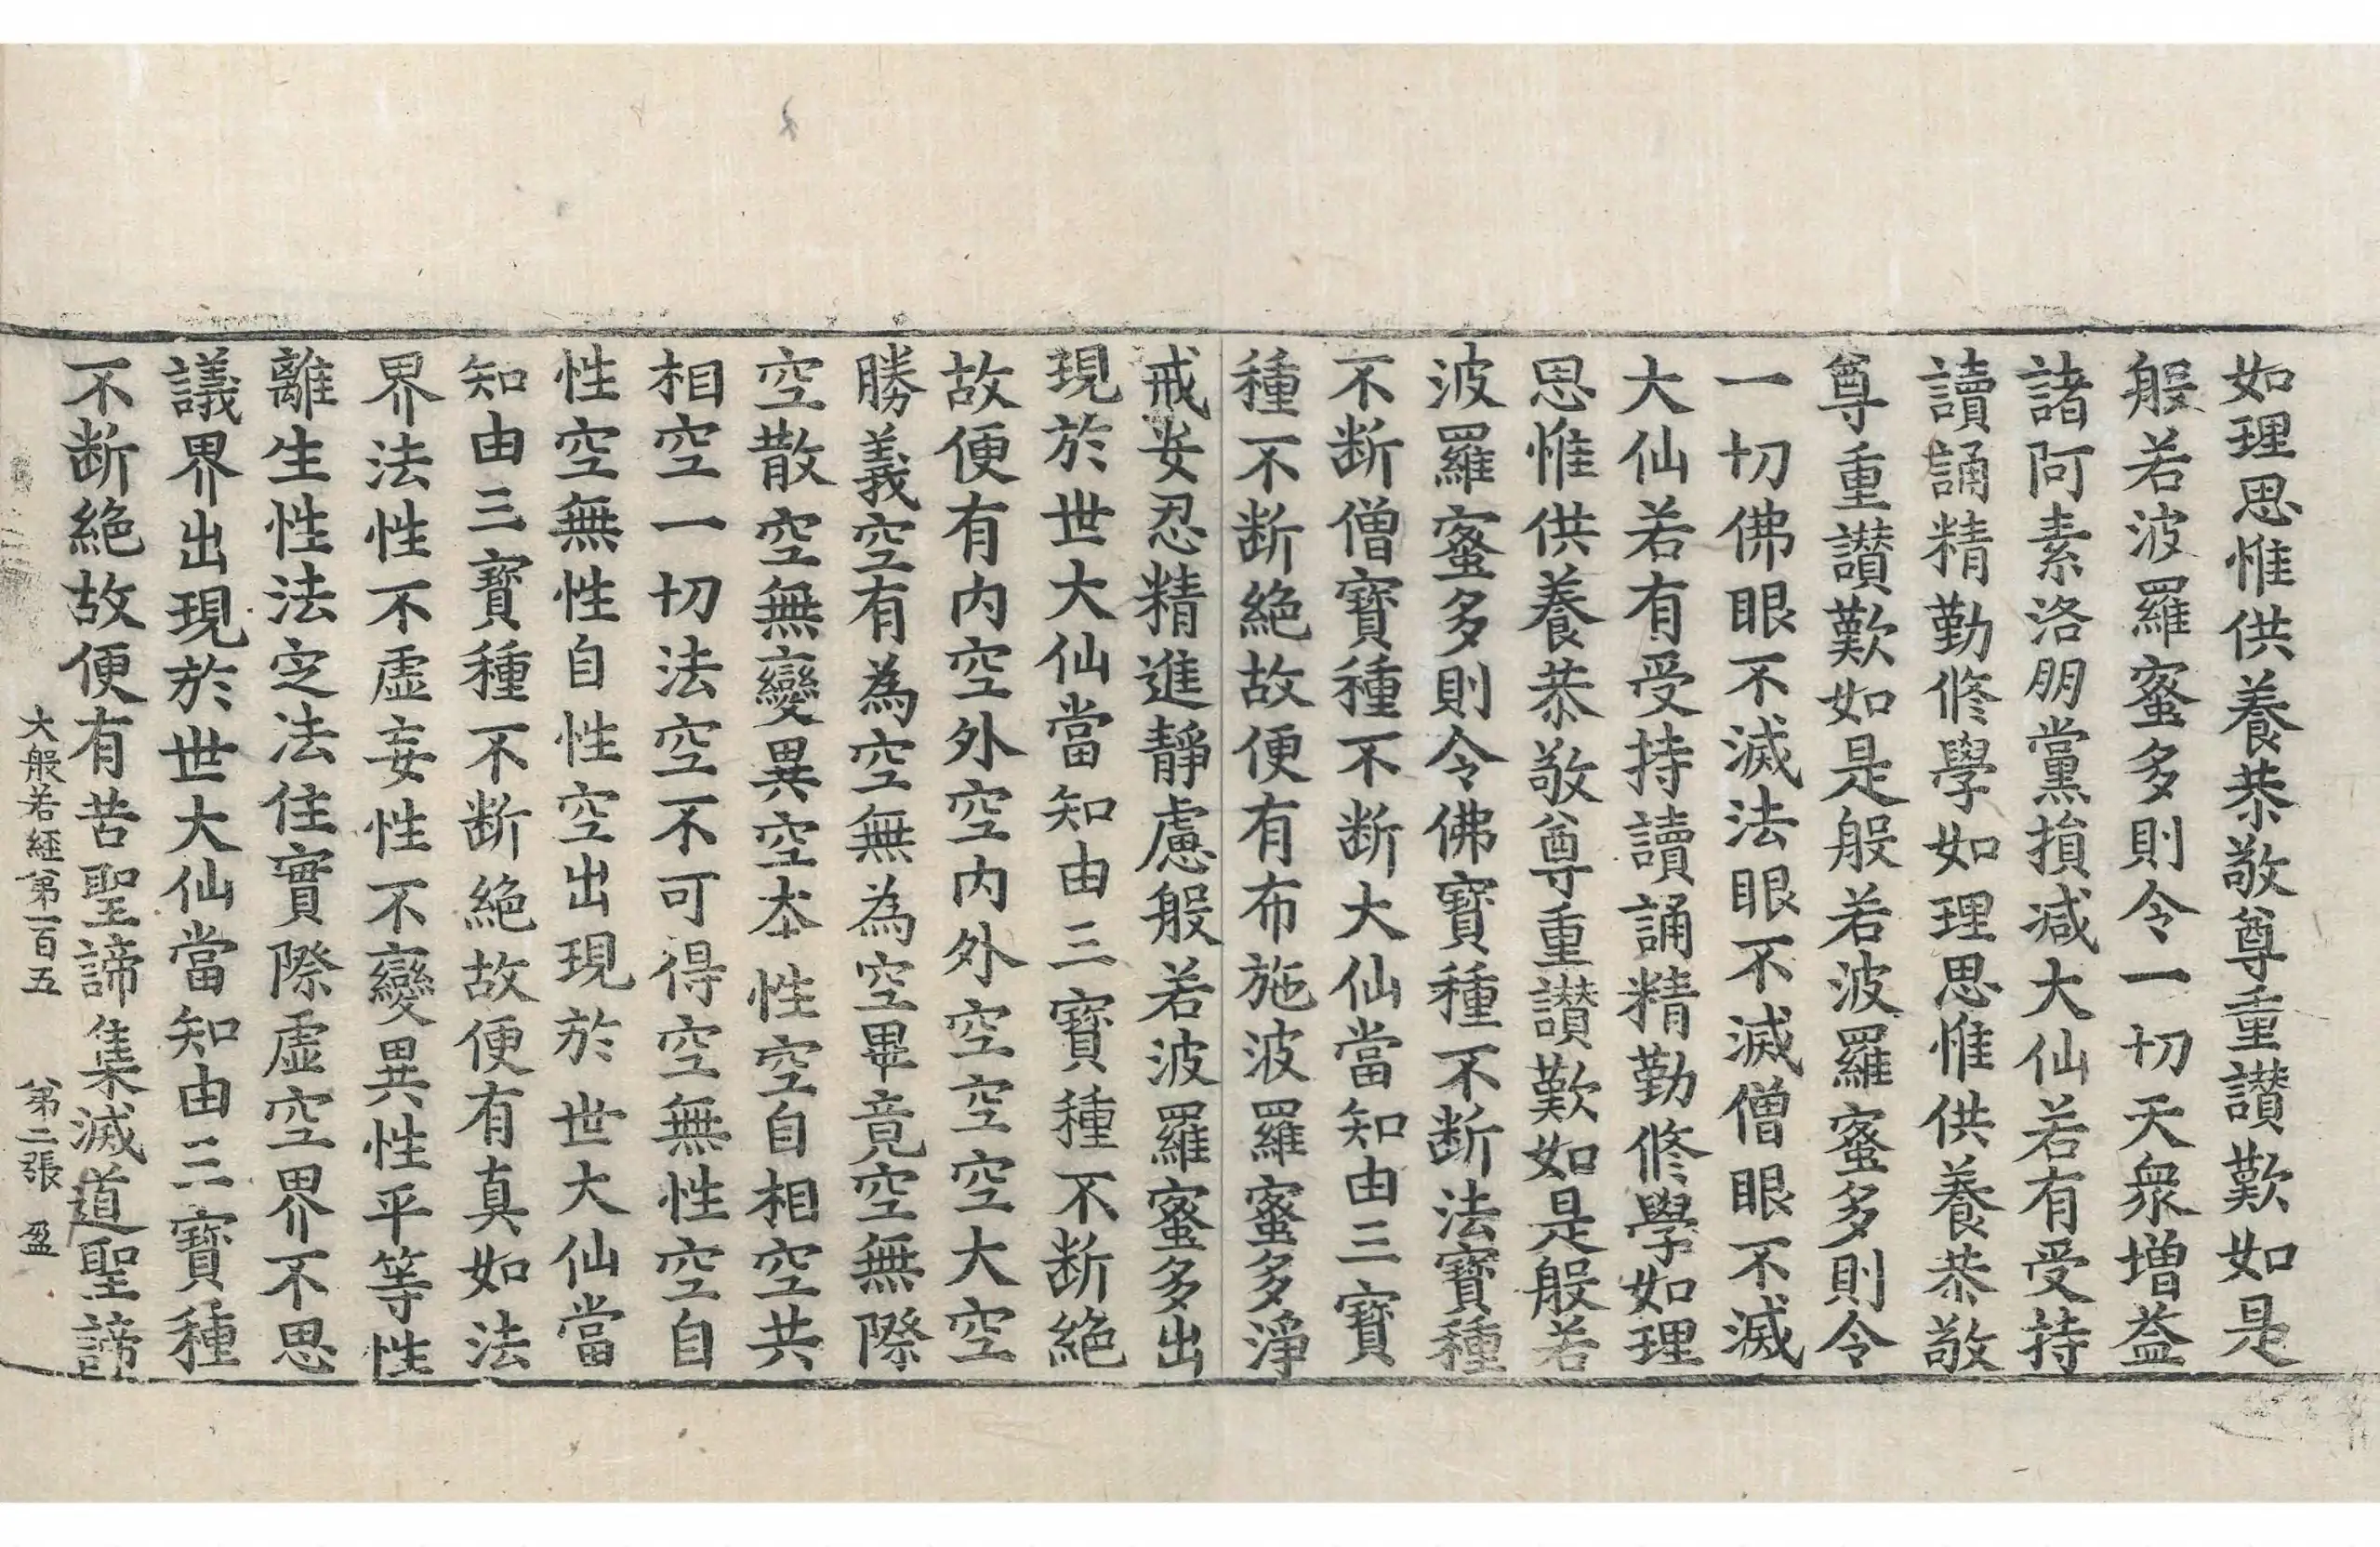 如理思惟供養恭敬尊重讃歎如是
般若波羅蜜多則令一切天衆增益
諸阿素洛朋黨損減大仙若有受持
讀誦精勤修學如理思惟供養恭敬
尊重讃歎如是般若波羅蜜多則令
一切佛眼不滅法眼不滅僧眼不滅
大仙若有受持讀誦精勤修學如理
思惟供養恭敬尊重讃歎如是般若
波羅蜜多則令佛寶種不断法寶種
不断僧寶種不断大仙當知由三寶
種不断絶故便有布施波羅蜜多淨
戒安忍精進靜慮般若波羅蜜多出
現於世大仙當知由三寶種不断絶
故便有内空外空内外空空空大空
勝義空有為空無為空畢竟空無際
空散空無變異空本性空自相空共
相空一切法空不可得空無性空自
性空無性自性空出現於世大仙當
知由三寶種不断絶故便有真如法
界法性不虛妄性不變異性平等性
離生性法定法住實際虛空界不思
議界出現於世大仙當知由三寶種
不断絶故便有苦聖諦集滅道聖諦
大般若經第一百五 第二張 盈